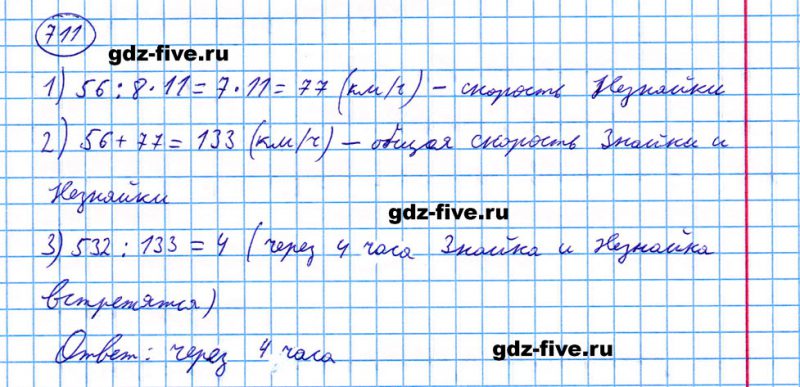 711
gdz-five.ru
1) 56 : 8 · 11 = 7 · 11 = 77 (км/ч) – скорость Незнайки
2) 56 + 77 = 133 (км/ч) – общая скорость Знайки и
Незнайки
gdz-five.ru
3) 532 : 133 = 4 (через 4 часа Знайка и Незнайка
встретятся)
Ответ: через 4 часа
gdz-five.ru